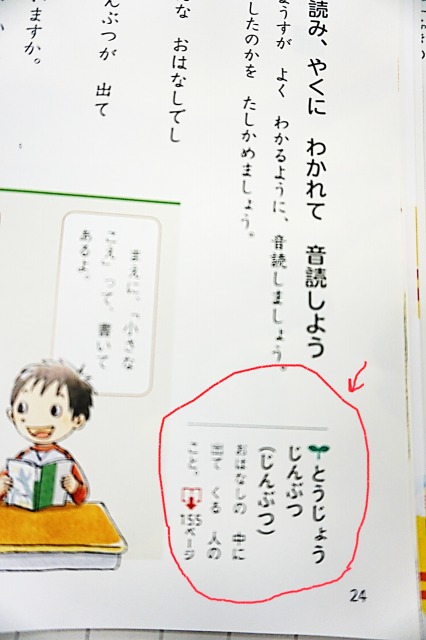 読み、やくに わかれて 音読しよう
ようすが よく わかるように、音読しましょう。
したのかを たしかめましょう。
な おはなしてし
んぶつが 出て
ますか。
まえに、「小さな
こえ」って、書いて
あるよ。
とうじょう
じんぶつ
(じんぶつ)
おはなしの 中に
出て くる 人の
こと。 155ページ
24